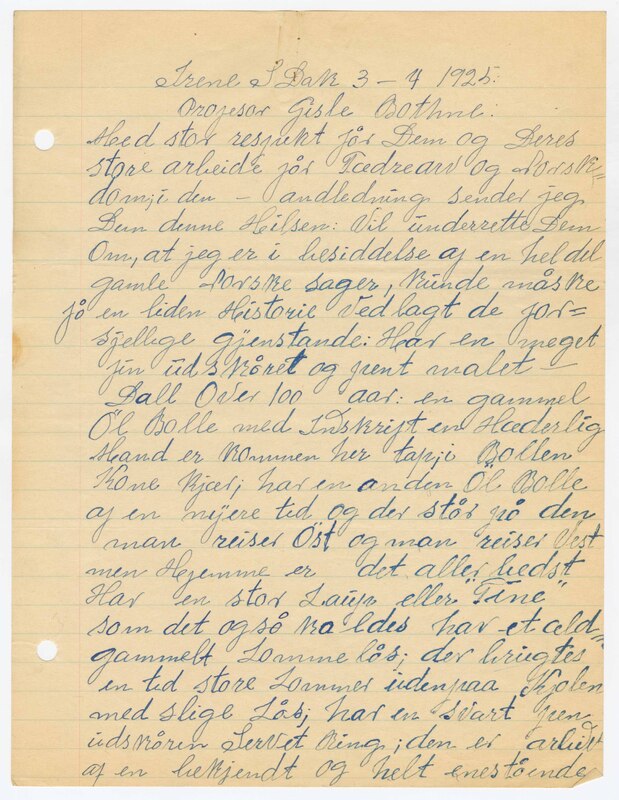 Irene S Dak 3 – 4 1925.
Profesor Gisle Bothne.
Med stor respekt før Dem og Deres
store arbeide før Fædrearv og Norsk=
dom; i den – andledning sender jeg
Dem denne Hilsen: Vil underrette Dem
Om, at jeg er i besiddelse af en hel del
gamle Norske sager, kunde måske
få en liden Historie Vedlagt de for=
sjellige gjenstande: Har en meget
fin udskåret og pent malet –
Ball Over 100 aar: en gammel
Öl Bolle med Indskrift en Hæderlig
Mand er kommen her tap i Bollen
Kone kjær; har en anden Öl Bolle
af en nyere tid og der står på den
man reiser Öst og man reiser Vest
men Hjemme er det aller bedst
Har en stor Laup eller "Tine"
som det også kaldes har et æld=
gammelt Lomme lås; der brugtes
en tid store Lommer udenpaa Kjolen
med slige Lås; har en svart pen
udskåren Servet Ring; den er arbeidt
af en bekjendt og helt enestående